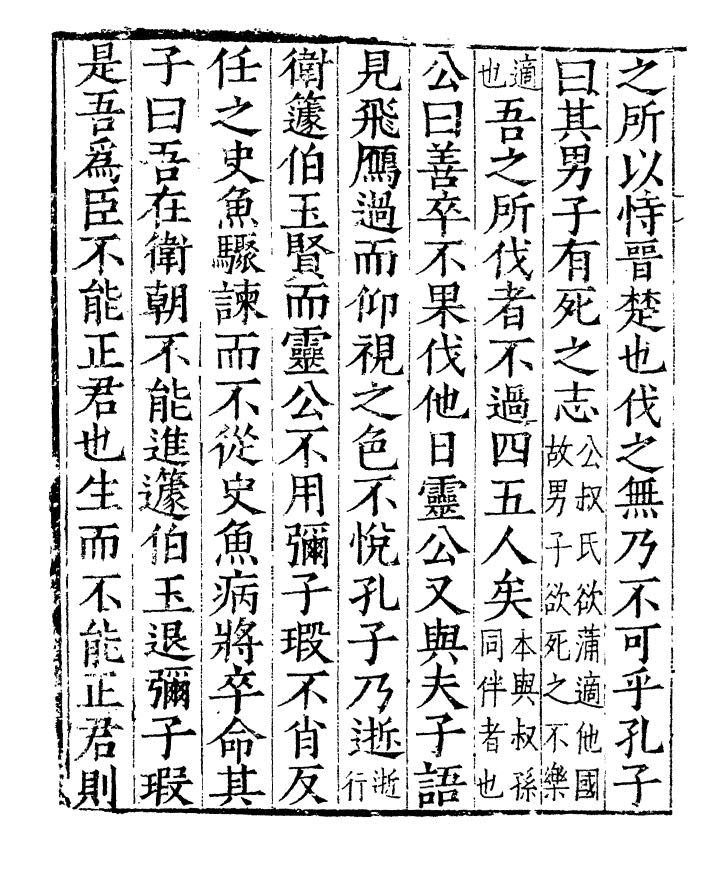 之所以恃晉楚也伐之無乃不可乎孔子
曰其男子有死之志公叔氏欲蒲適他國故男子欲死之不樂
適也吾之所伐者不過四五人矣本與叔孫同伴者也
公曰善卒不果伐他日靈公又與夫子語
見飛鴈過而仰視之色不悅孔子乃逝逝行
衛籧伯玉賢而靈公不用彌子瑕不肖反
任之史魚驟諫而不從史魚病將卒命其
子曰吾在衛朝不能進蘧伯玉退彌子瑕
是吾爲臣不能正君也生而不能正君則